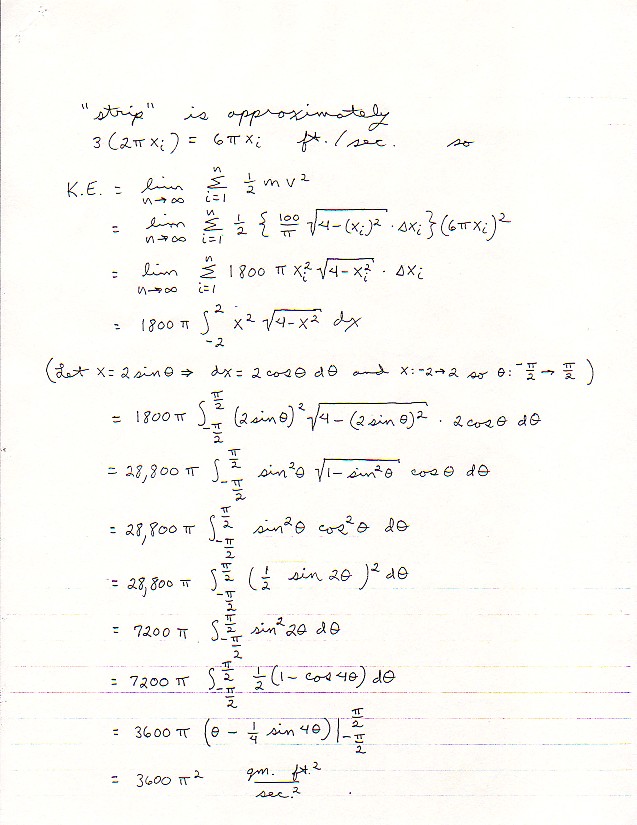 "strip" is approximately
3 (2π xᵢ) = 6π xᵢ ft. / sec. so
K.E. = lim n→∞ Σ i=1 n ½ m v²
= lim n→∞ Σ i=1 n ½ { 100/π √(4-(xᵢ)²) · Δxᵢ } (6πxᵢ)²
= lim n→∞ Σ i=1 n 1800 π xᵢ² √(4-xᵢ²) · Δxᵢ
= 1800 π ∫_{-2}^{2} x² √(4-x²) dx
(Let x = 2 sin θ ⇒ dx = 2 cos θ dθ and x: -2→2 so θ: -π/2 → π/2 )
= 1800 π ∫_{-π/2}^{π/2} (2 sin θ)² √(4-(2 sin θ)²) · 2 cos θ dθ
= 28,800 π ∫_{-π/2}^{π/2} sin²θ √(1-sin²θ) cos θ dθ
= 28,800 π ∫_{-π/2}^{π/2} sin²θ cos²θ dθ
= 28,800 π ∫_{-π/2}^{π/2} (½ sin 2θ )² dθ
= 7200 π ∫_{-π/2}^{π/2} sin² 2θ dθ
= 7200 π ∫_{-π/2}^{π/2} ½ (1 - cos 4θ) dθ
= 3600 π (θ - ¼ sin 4θ) |_{-π/2}^{π/2}
= 3600 π² gm. ft.² / sec.²